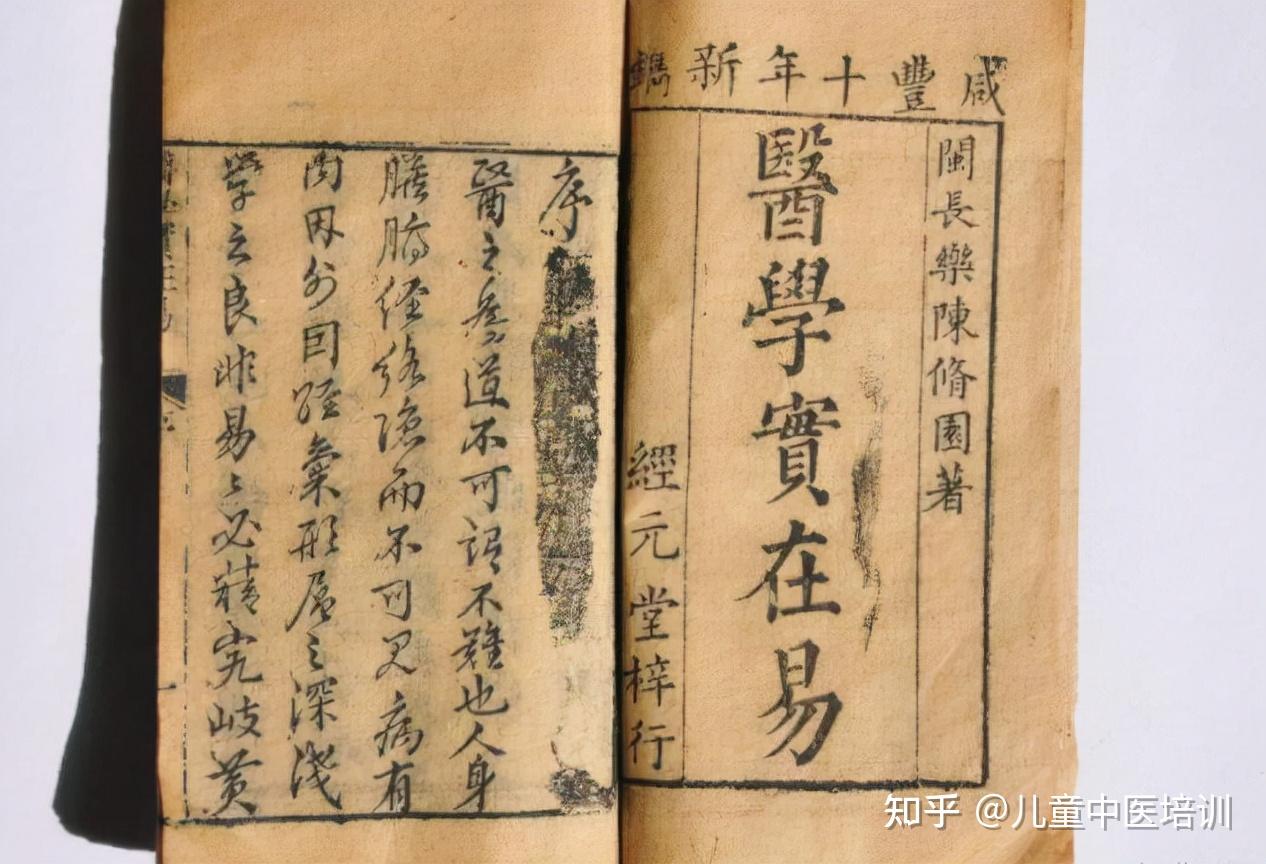 咸豐十年新鐫
閩長樂陳脩園著
醫學實在易
經元堂梓行
序
醫之為道不可謂不難也人身
臟腑經絡隱而不可見病有
內因外因經氣形層之淺深
學之良非易〻必精究岐黃
知乎 @儿童中医培训